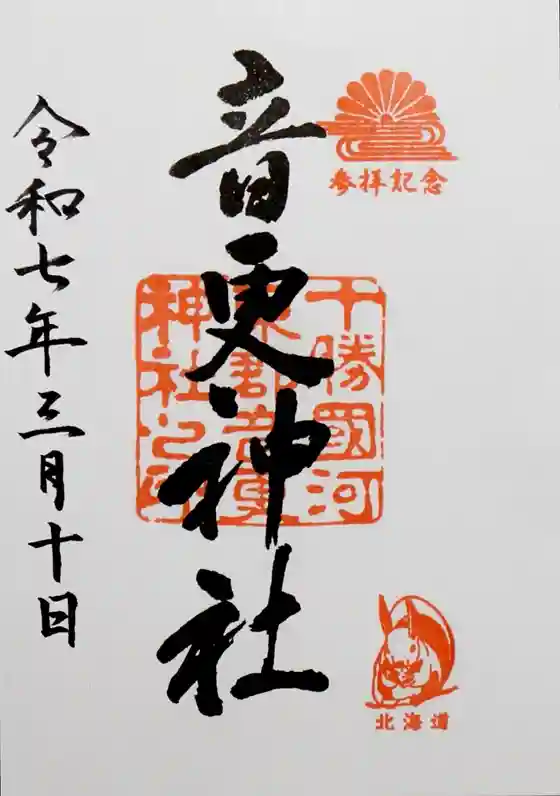 参拝記念
十勝國河
東郡音更
神社之印
音更神社
北海道
令和七年三月十日